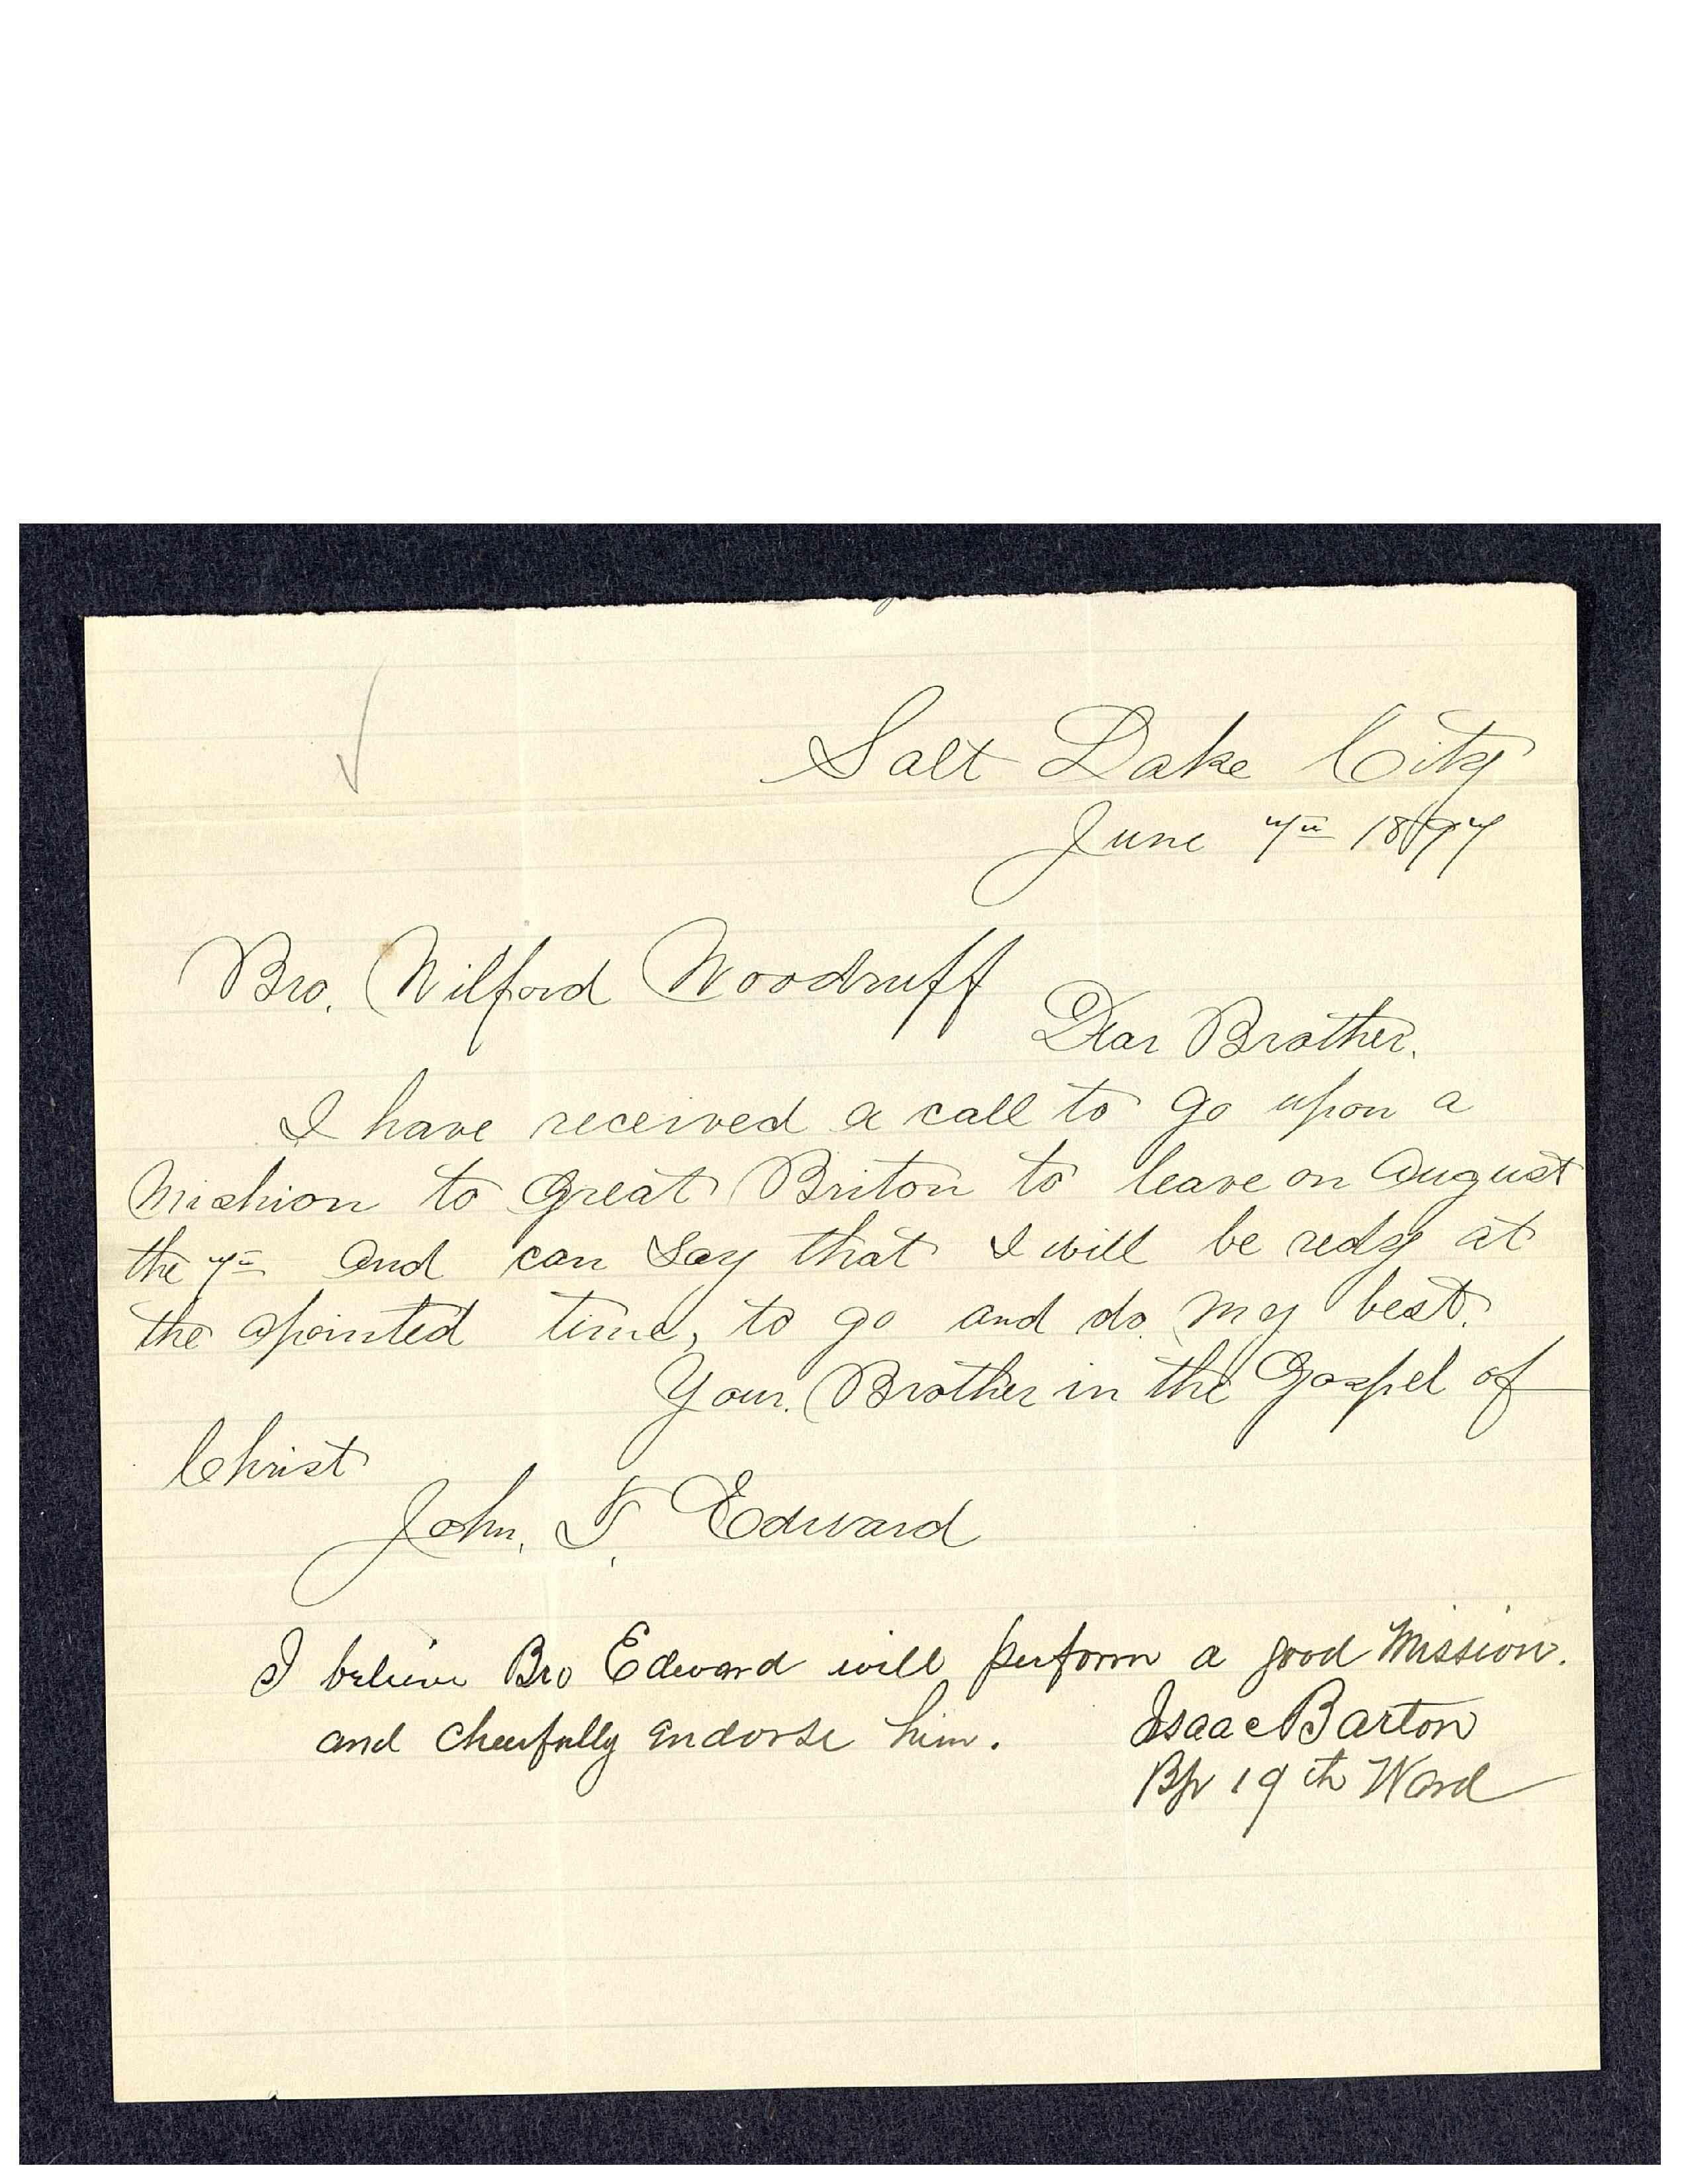 Salt Lake City
June 7th 1897
Bro. Wilford Woodruff
Dear Brother.
I have received a call to go upon a
Mishion to Great Briton to leave on August
the 7th And can Say that I will be redy at
the apointed time, to go and do my best.
Your. Brother in the Gospel of
Christ
John. T. Edward
I believe Bro Edward will perform a good Mission.
and cheerfully endorse him.
Isaac Barton
Bp 19th Ward